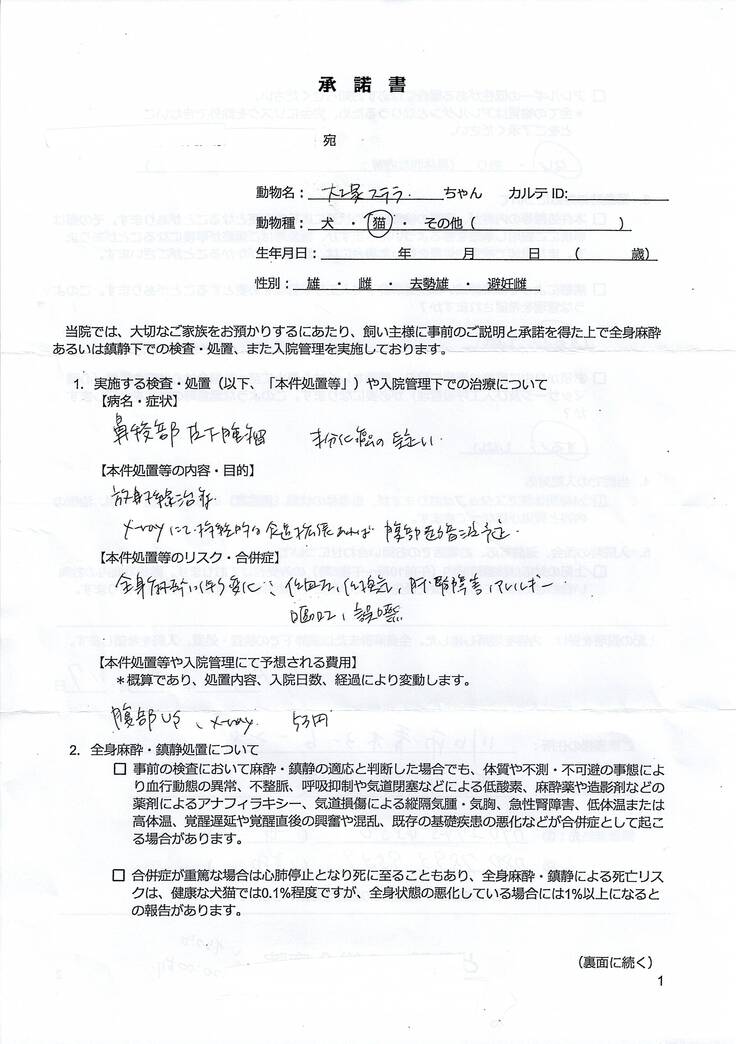 承 諾 書
宛
動物名： 大塚ステラ ちゃん カルテID:
動物種： 犬 ・ 猫 ・ その他（ ）
生年月日： 年 月 日 （ 歳）
性別： 雄 ・ 雌 ・ 去勢雄 ・ 避妊雌
当院では、大切なご家族をお預かりするにあたり、飼い主様に事前のご説明と承諾を得た上で全身麻酔
あるいは鎮静下での検査・処置、また入院管理を実施しております。
1. 実施する検査・処置（以下、「本件処置等」）や入院管理下での治療について
【病名・症状】
鼻稜部皮下腫瘤 未分化癌の疑い
【本件処置等の内容・目的】
放射線治療
X-rayにて持続的な食道拡張あれば 腹部
【本件処置等のリスク・合併症】
全身麻酔に伴う変化：低血圧、低換気、肝腎障害、アレルギー
嘔吐、誤嚥
【本件処置等や入院管理にて予想される費用】
＊概算であり、処置内容、入院日数、経過により変動します。
腹部US、X-ray 5万円
2. 全身麻酔・鎮静処置について
□ 事前の検査において麻酔・鎮静の適応と判断した場合でも、体質や不測・不可避の事態によ
り血行動態の異常、不整脈、呼吸抑制や気道閉塞などによる低酸素、麻酔薬や造影剤などの
薬剤によるアナフィラキシー、気道損傷による縦隔気腫・気胸、急性腎障害、低体温または
高体温、覚醒遅延や覚醒直後の興奮や混乱、既存の基礎疾患の悪化などが合併症として起こ
る場合があります。
□ 合併症が重篤な場合は心肺停止となり死に至ることもあり、全身麻酔・鎮静による死亡リス
クは、健康な犬猫では0.1%程度ですが、全身状態の悪化している場合には1%以上になると
の報告があります。
（裏面に続く）
1